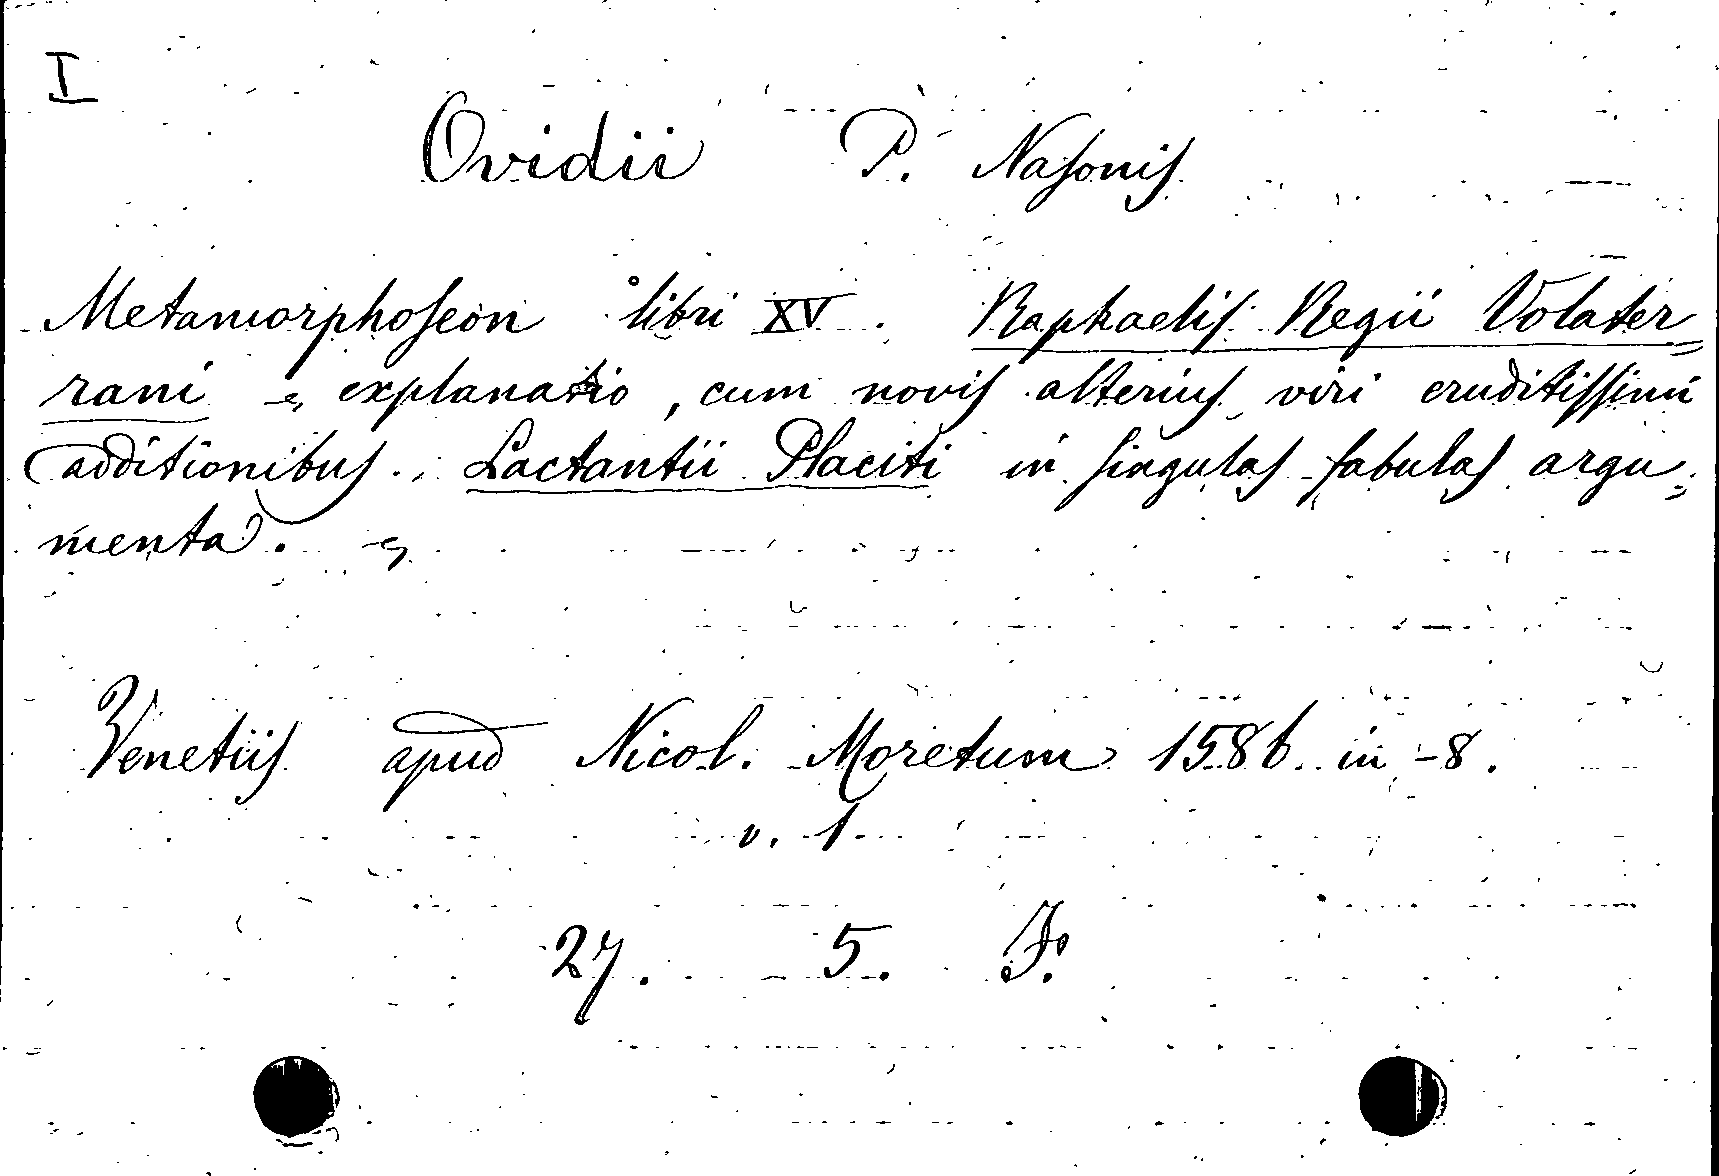 I
Ovidii P. Nasonis
Metamorphoseon libri XV. Raphaelis Regii Volater=
rani explanatio, cum novis alterius viri eruditissimi
additionibus. Lactantii Placiti in singulas fabulas argu=
menta.
Venetiis apud Nicol. Moretum 1586. in -8.
v. 1
27. 5. F.